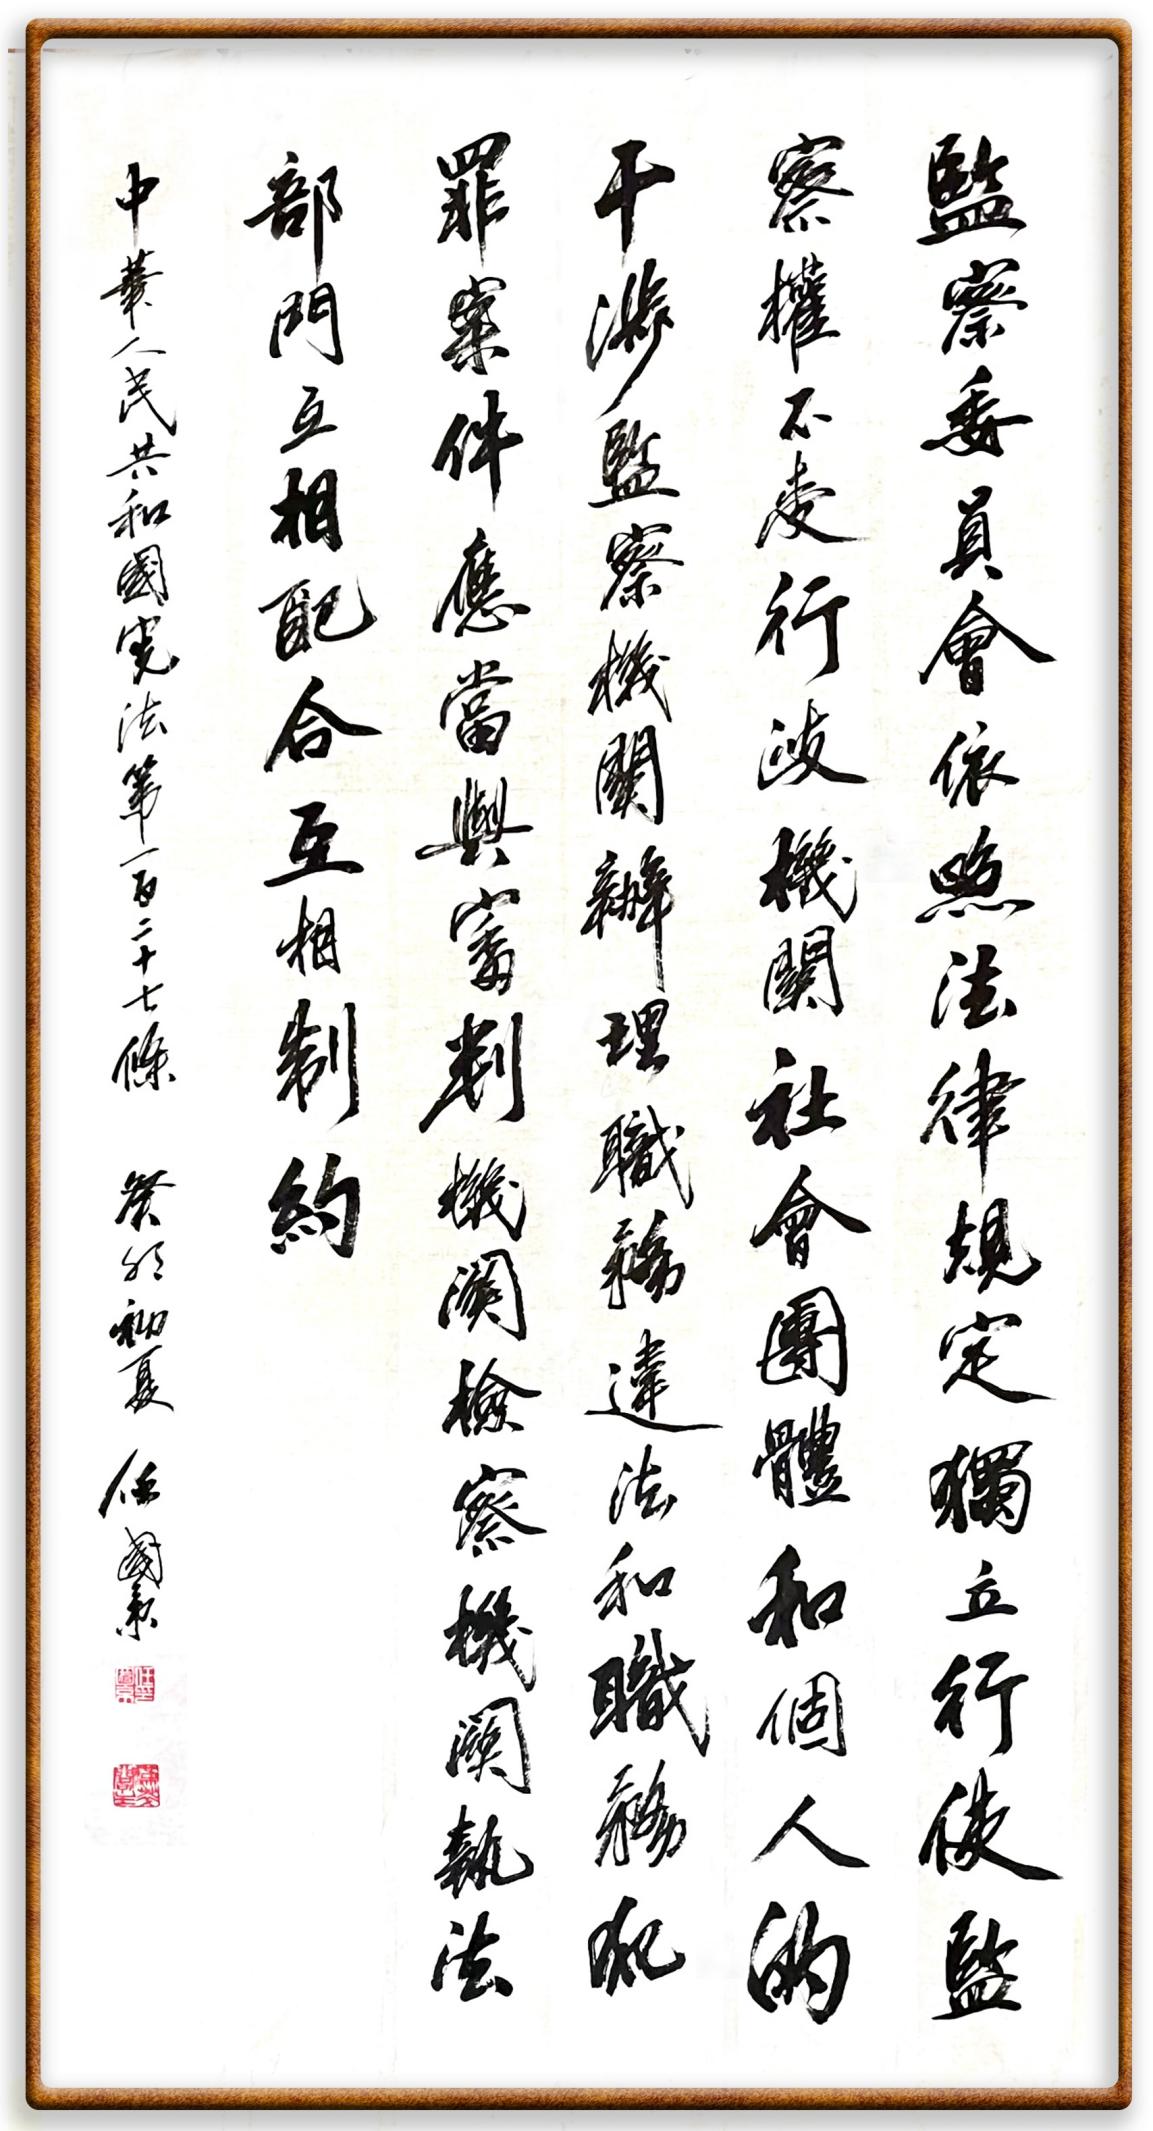 監察委員會依照法律規定獨立行使監
察權不受行政機關社會團體和個人的
干涉監察機關辦理職務違法和職務犯
罪案件應當與審判機關檢察機關執法
部門互相配合互相制約
中華人民共和國憲法第一百二十七條 癸卯初夏 任國東